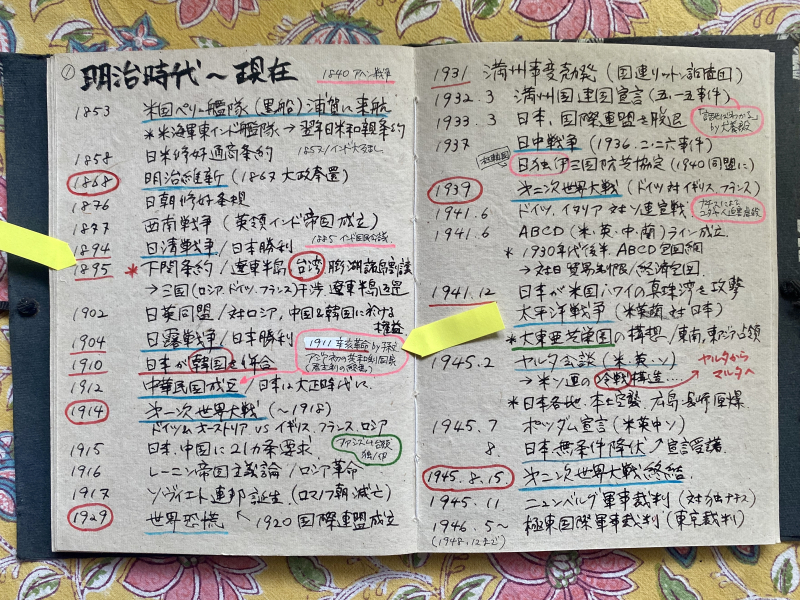 ① 明治時代〜現在
1840 アヘン戦争
1853 米国ペリー艦隊(黒船)浦賀に来航
*米海軍東インド艦隊→翌年日米和親条約
1858 日米修好通商条約 1857/インド大反乱
1868 明治維新(1867 大政奉還)
1876 日朝修好条規
1877 西南戦争(英領インド帝国成立)
1894 日清戦争/日本勝利 1885 インド国民会議
1895 *下関条約/遼東半島 台湾 膨湖諸島割譲
→三国(ロシア、ドイツ、フランス)干渉 遼東半島返還
1902 日英同盟/対ロシア、中国&韓国に於ける
権益
1904 日露戦争/日本勝利
1911 辛亥革命 by 孫文
アジア初の共和制国家
1910 日本が韓国を併合
1912 中華民国成立/日本は大正時代に
1914 第一次世界大戦(〜1918)
ドイツ、オーストリア vs イギリス、フランス、ロシア
1915 日本、中国に21カ条要求
ファシズム台頭
独/伊
1916 レーニン帝国主義論/ロシア革命
1917 ソヴィエト連邦誕生(ロマノフ朝滅亡)
1929 世界恐慌 ← 1920 国際連盟成立
1931 満州事変勃発(国連リットン調査団)
1932.3 満州国建国宣言(五・一五事件)
1933.3 日本、国際連盟を脱退
「話せばわかる」
by 犬養毅
1937 日中戦争(1936 二・二六事件)
日独伊三国防共協定(1940 同盟に)
1939 第二次世界大戦(ドイツ対イギリス、フランス)
1941.6 ドイツ、イタリア対ソ連宣戦
ナチスによる
ユダヤ人迫害虐殺
1941.6 ABCD(米・英・中・蘭)ライン成立
*1930年代後半、ABCD包囲網
→対日貿易制限/経済包囲
1941.12 日本が米国ハワイの真珠湾を攻撃
太平洋戦争(米英蘭対日本)
*大東亜共栄圏の構想/東南、東アジア占領
1945.2 ヤルタ会談(米・英・ソ)
→米ソ連の冷戦構造....
ヤルタから
マルタへ
*日本各地・本土空襲、広島・長崎原爆
1945.7 ポツダム宣言(米英中)
8. 日本無条件降伏 宣言受諾
1945.8.15 第二次世界大戦終結
1945.11 ニュンベルグ軍事裁判(対独ナチス)
1946.5〜 極東国際軍事裁判(東京裁判)
(1948.12まで)